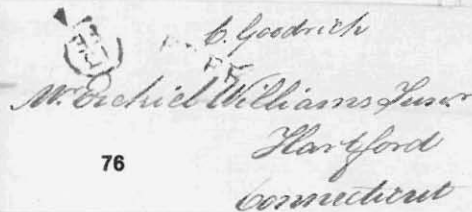 C. Goodrich
Mr. Ezekiel Williams Junr
Hartford
76
Connecticut